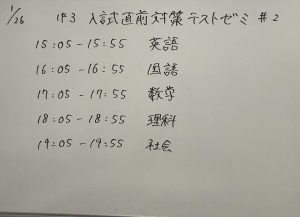 1/26 中3 入試直前対策テストゼミ #2
15:05-15:55 英語
16:05-16:55 国語
17:05-17:55 数学
18:05-18:55 理科
19:05-19:55 社会